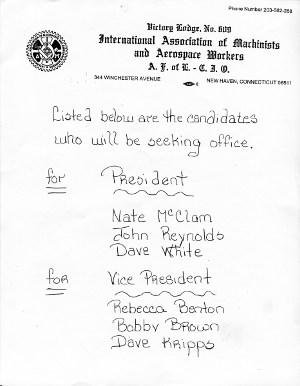 Phone Number 203-562-
Victory Lodge, No. 609
International Association of Machinists
and Aerospace Workers
A. F. of L. - C. I. O.
344 WINCHESTER AVENUE
NEW HAVEN, CONNECTICUT 06511
Listed below are the candidates
who will be seeking office.
for President
Nate McClam
John Reynolds
Dave White
for Vice President
Rebecca Benton
Bobby Brown
Dave Kripps